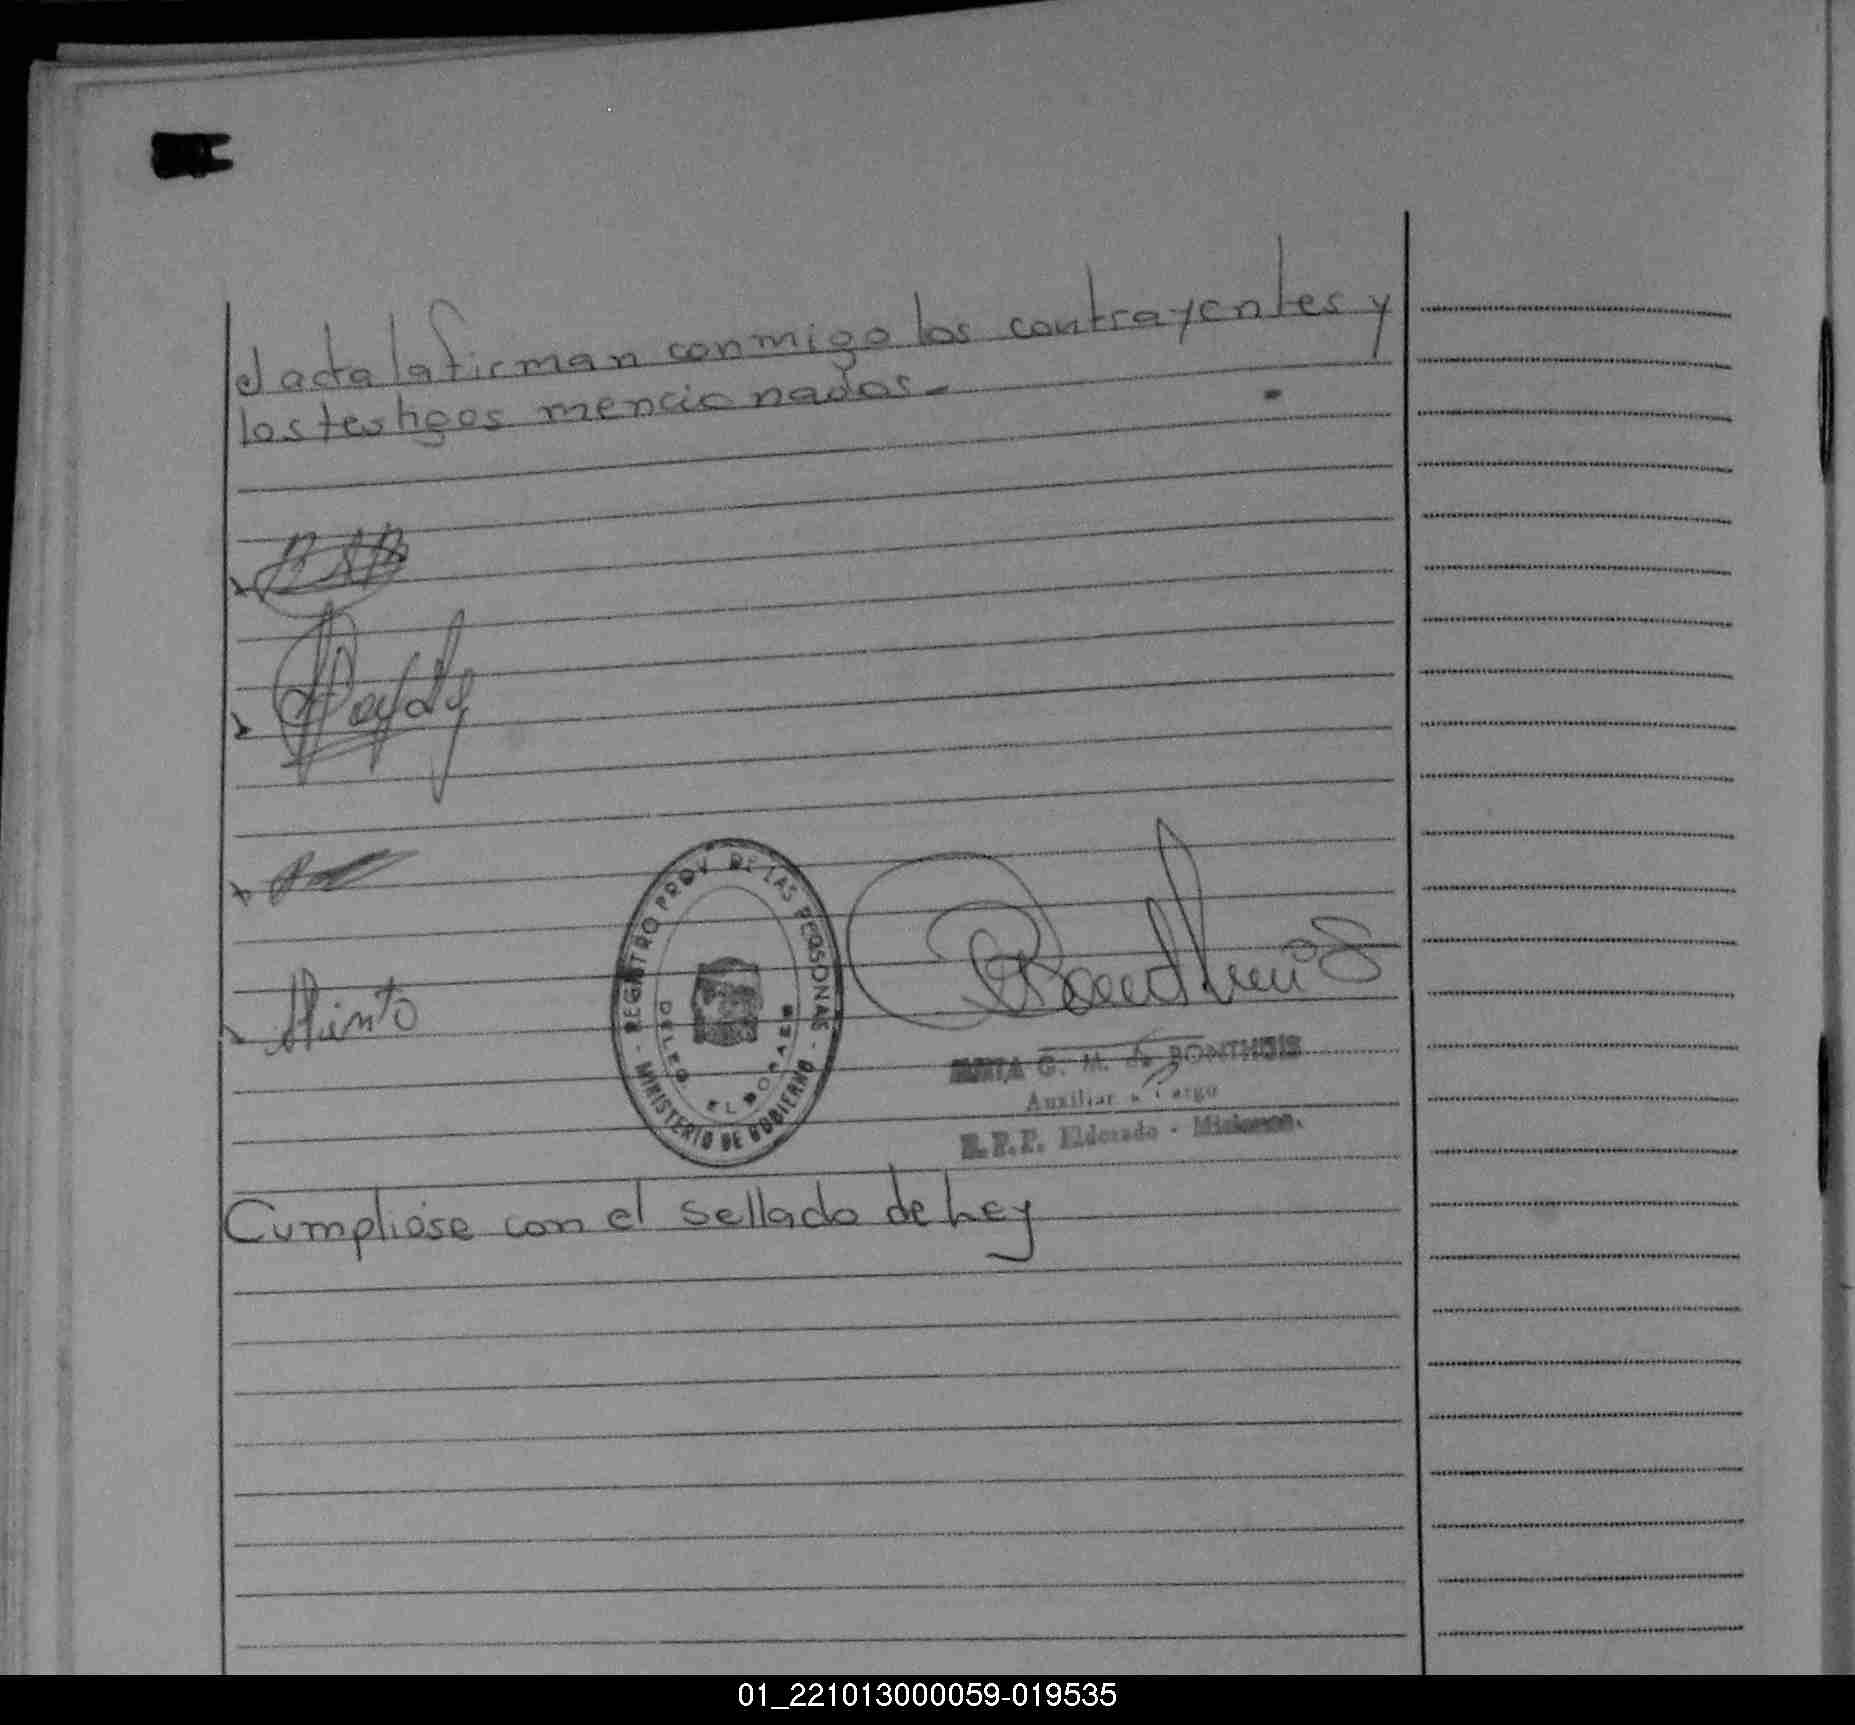 el acta la firman conmigo los contrayentes y
los testigos mencionados.-
REGISTRO PROV. DE LAS PERSONAS
- MINISTERIO DE GOBIERNO -
ELDORADO
G. M. de BONTHUIS
Auxiliar a Cargo
R.P.P. Eldorado - Misiones.
Cumplióse con el sellado de Ley
01_221013000059-019535